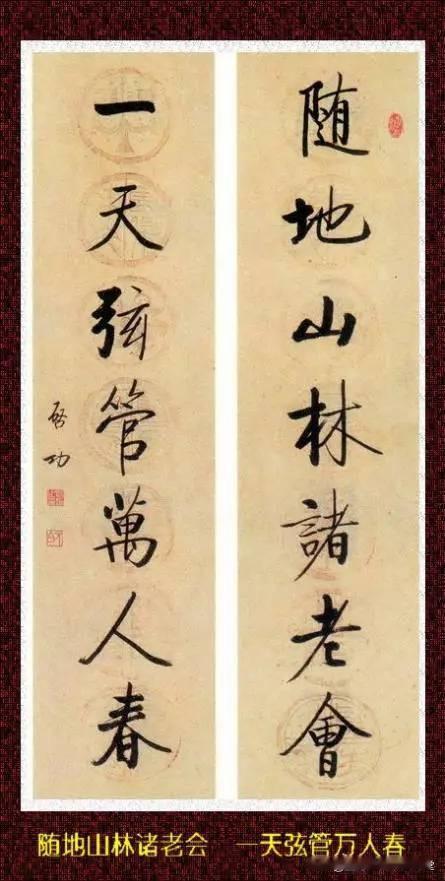 随地山林諸老會
一天弦管萬人春
啓功
随地山林诸老会 一天弦管万人春